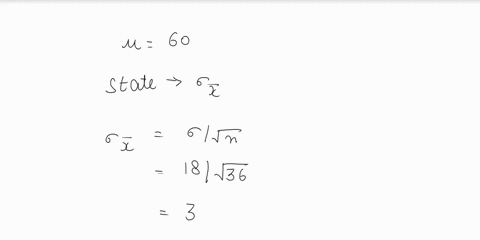 μ = 60
State → σx̄
σx̄ = σ/√n
= 18/√36
= 3